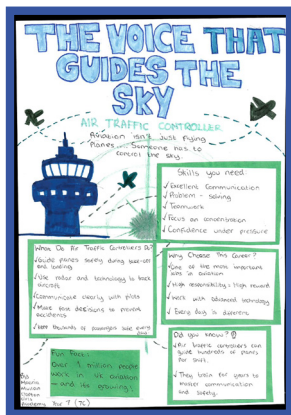 THE VOICE THAT
GUIDES THE
SKY
AIR TRAFFIC CONTROLLER
Aviation isn't just flying
planes... Someone has to
control the sky.
Skills you need
✓ Excellent Communication
✓ Problem - solving
✓ Teamwork
✓ Focus on concentration
✓ Confidence under pressure
What Do Air Traffic Controllers Do?
✓ Guide planes safely during take-off
and landing
✓ Use radar and technology to track
aircraft
✓ Communicate clearly with pilots
✓ Make fast decisions to prevent
accidents
✓ Keep thousands of passengers safe every
day
Why Choose This Career?
✓ One of the most important
jobs in aviation
✓ High responsibility, high reward
✓ Work with advanced technology
✓ Every day is different
Did you know?
✓ Air traffic controllers can
guide hundreds of planes
per shift.
✓ They train for years to
master communication
and safety.
Fun Fact:
Over 1 million people
work in UK aviation
- and it's growing!
By
Academy